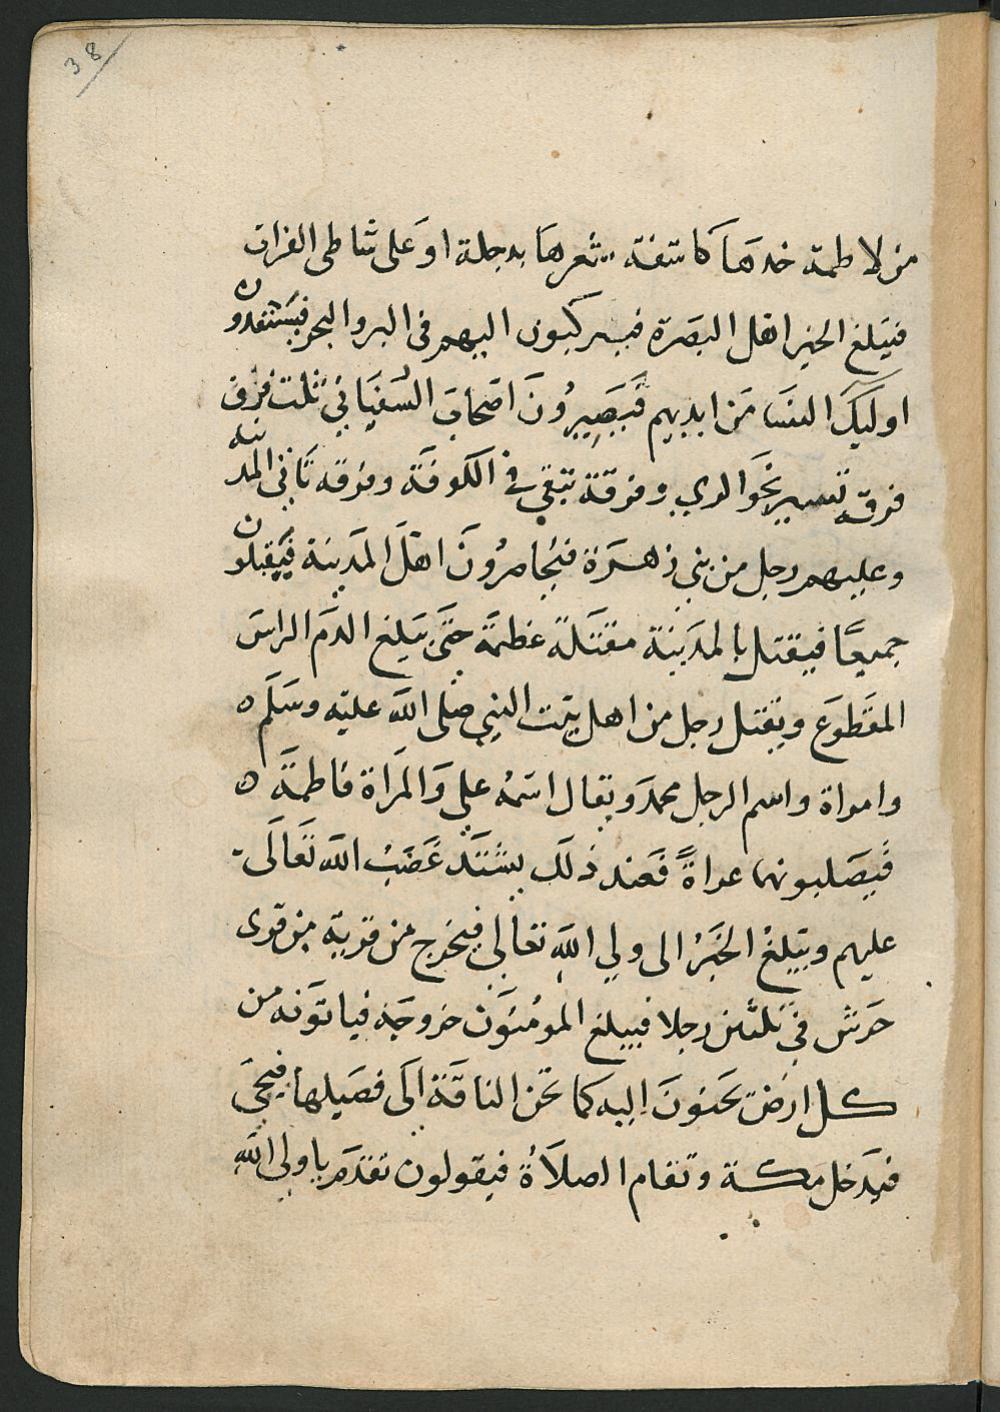 38
من لاطمة خدها كاشفة شعرها بدجلة او على شاطى الفرات
فيبلغ الخبر اهل البصرة فيركبون اليهم فى البر والبحر فيستنقذون
اوليك النسا من ايديهم فيصيرون اصحاب السفياني ثلث فرق
فرقة تسير نحو الري وفرقة تبقى في الكوفة وفرقة تاتي المدينة
وعليهم رجل من بني زهرة فيحاصرون اهل المدينة فيقبلون
جميعا فيقتل بالمدينة مقتلة عظمة حتى يبلغ الدم الراس
المقطوع ويقتل رجل من اهل بيت النبي صلى الله عليه وسلم ه
وامراة واسم الرجل محمد ويقال اسمه علي والمراة فاطمة ه
فيصلبونهما عراة فعند ذلك يشتد غضب الله تعالى
عليهم ويبلغ الخبر الى ولي الله تعالى فيخرج من قرية من قرى
حرش في ثلثين رجلا فيبلغ المومنون خروجه فياتونه من
كل ارض يحنون اليه كما تحن الناقة الى فصيلها فيجى
فيدخل مكة وتقام الصلاة فيقولون تقدم يا ولي الله